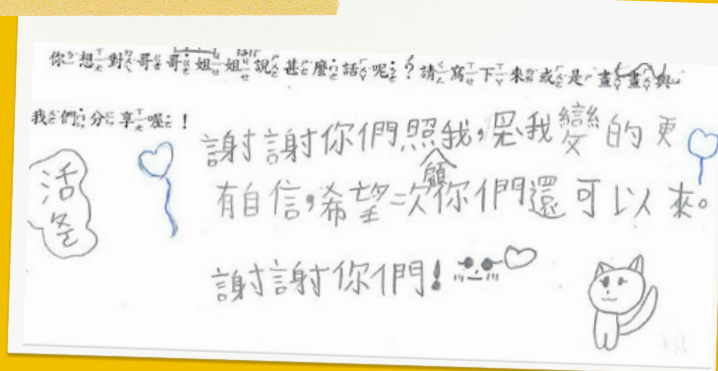 你想對哥哥姐姐說甚麼話呢?請寫下來或是畫畫與
我們分享喔!
謝謝你們照顧我,我變的更
有自信,希望二次你們還可以來。
謝謝你們!
活